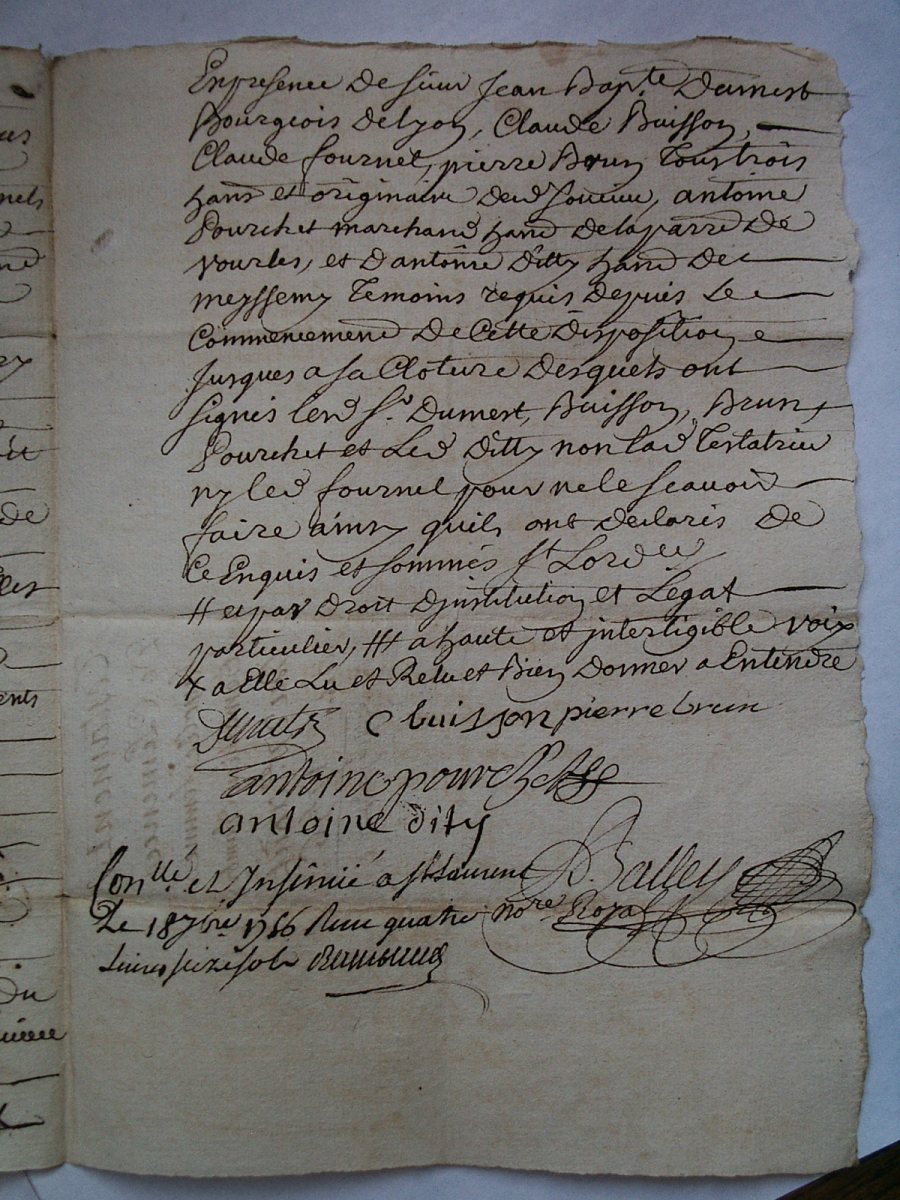 En presence de sieur Jean Bap.te Dumert
Bourgeois de lyon, Claude Buisson,
Claude fournel, pierre Brun Tous trois
hand et originaire dud Soucieu, antoine
Pourchet marchand hand de la parre de
vourles, et d'antoine Ditty hand de
meyssemy Temoins requis depuis Le
Commencement de Cette disposition e
Jusques a sa Cloture desquels ont
signés led S.r Dumert, Buisson, Brun,
Pourchet et Led Ditty non lad Testatrice
ny led fournel pour ne le scavoir
faire ainsy quils ont declarés de
Ce Enquis et sommés st Lord ce
# et par droit d'institution et Legat
particulier, ## a haute et inteligible voix
x a Elle Lu et Relu et Bien donner a Entendre
Dumert C buisson pierre brun
antoine pourchet
antoine dity
Con.llé et Insinué a st Laurent
Le 18 7bre 1756 Reçu quatre
Livres seize sols
Balley
no.re Royal